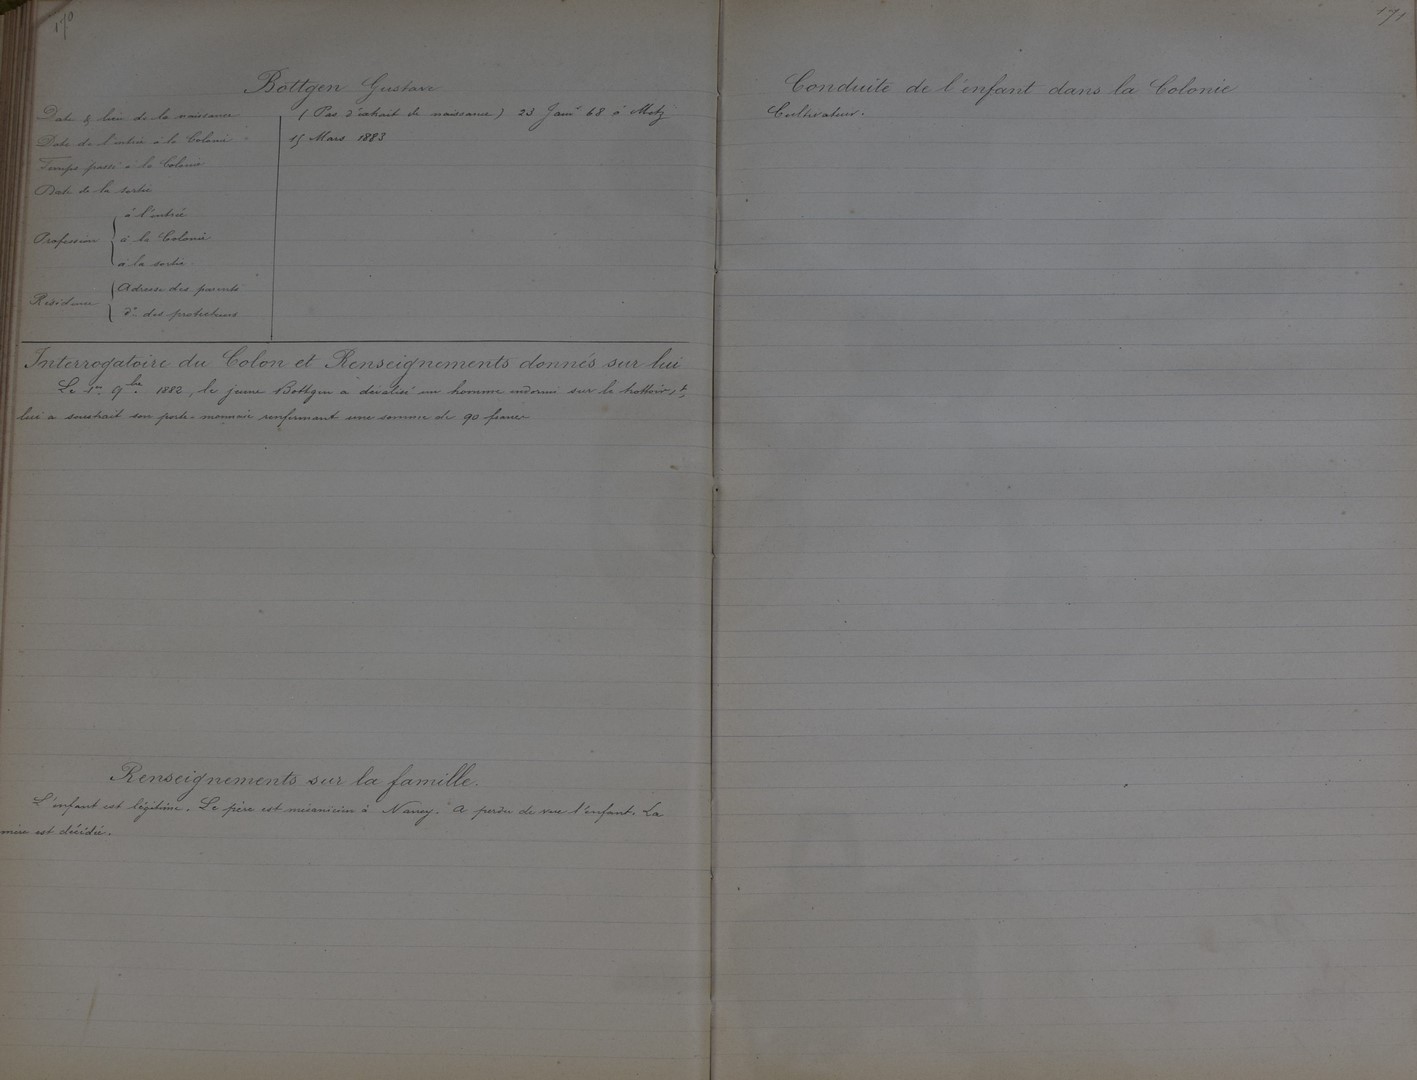 170
Bottgen Gustave
Date & lieu de la naissance (Pas d'extrait de naissance) 23 Janr 68 à Metz
Date de l'entrée à la Colonie 15 Mars 1883
Temps passé à la Colonie
Date de la sortie
Profession
à l'entrée
à la Colonie
à la sortie
Résidence
Adresse des parents
do des protecteurs
Interrogatoire du Colon et Renseignements donnés sur lui
Le 1er 9bre 1882, le jeune Bottgen a dévalisé un homme endormi sur le trottoir, &
lui a soustrait son porte-monnaie renfermant une somme de 90 francs
Renseignements sur la famille.
L'enfant est légitime. Le père est mécanicien à Nancy. A perdu de vue l'enfant. La
mère est décédée.
171
Conduite de l'enfant dans la Colonie
Cultivateur.